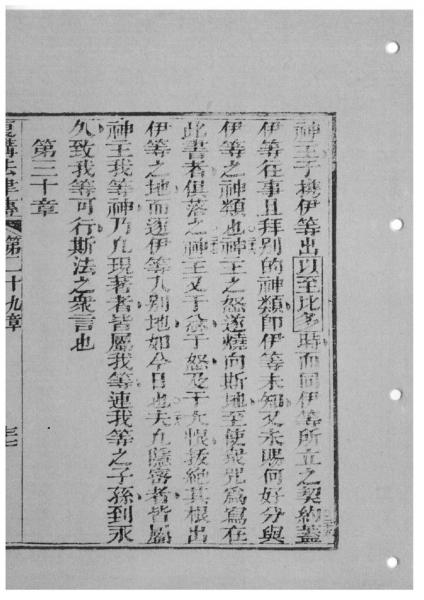 神王于携伊等出以至比多時而同伊等所立之契約蓋
伊等往事且拜別的神類即伊等未知又未賜何好分與
伊等之神類也神王之怒遂燒向斯地至使衆咒爲寫在
此書者俱落之神王又于忿于怒及于大恨拔絕其根出
伊等之地而逐伊等入別地如今日也夫凡隱密者皆屬
神王我等神乃凡現著者皆屬我等連我等之子孫到永
久致我等可行斯法之衆言也
第三十章
復講法律傳 第二十九章